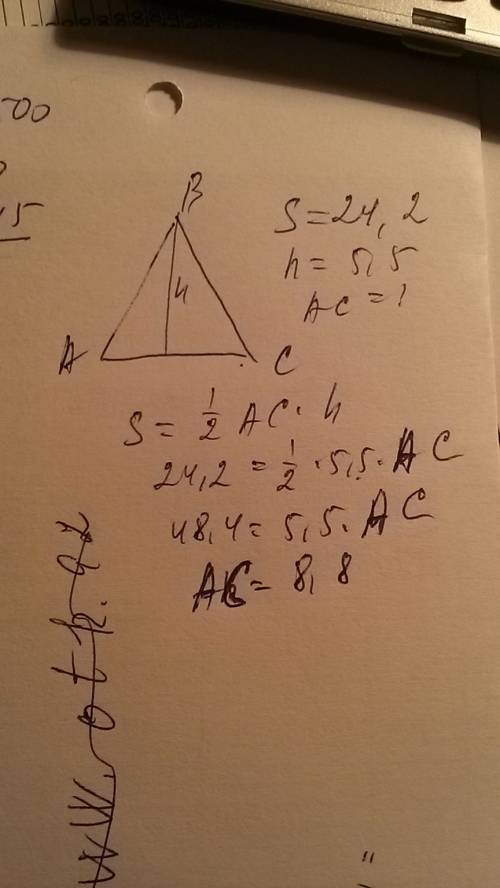 00
5
B
S = 24,2
h = 5,5
AC = ?
h
A
C
S = 1/2 AC · h
24,2 = 1/2 · 5,5 · AC
48,4 = 5,5 · AC
AC = 8,8